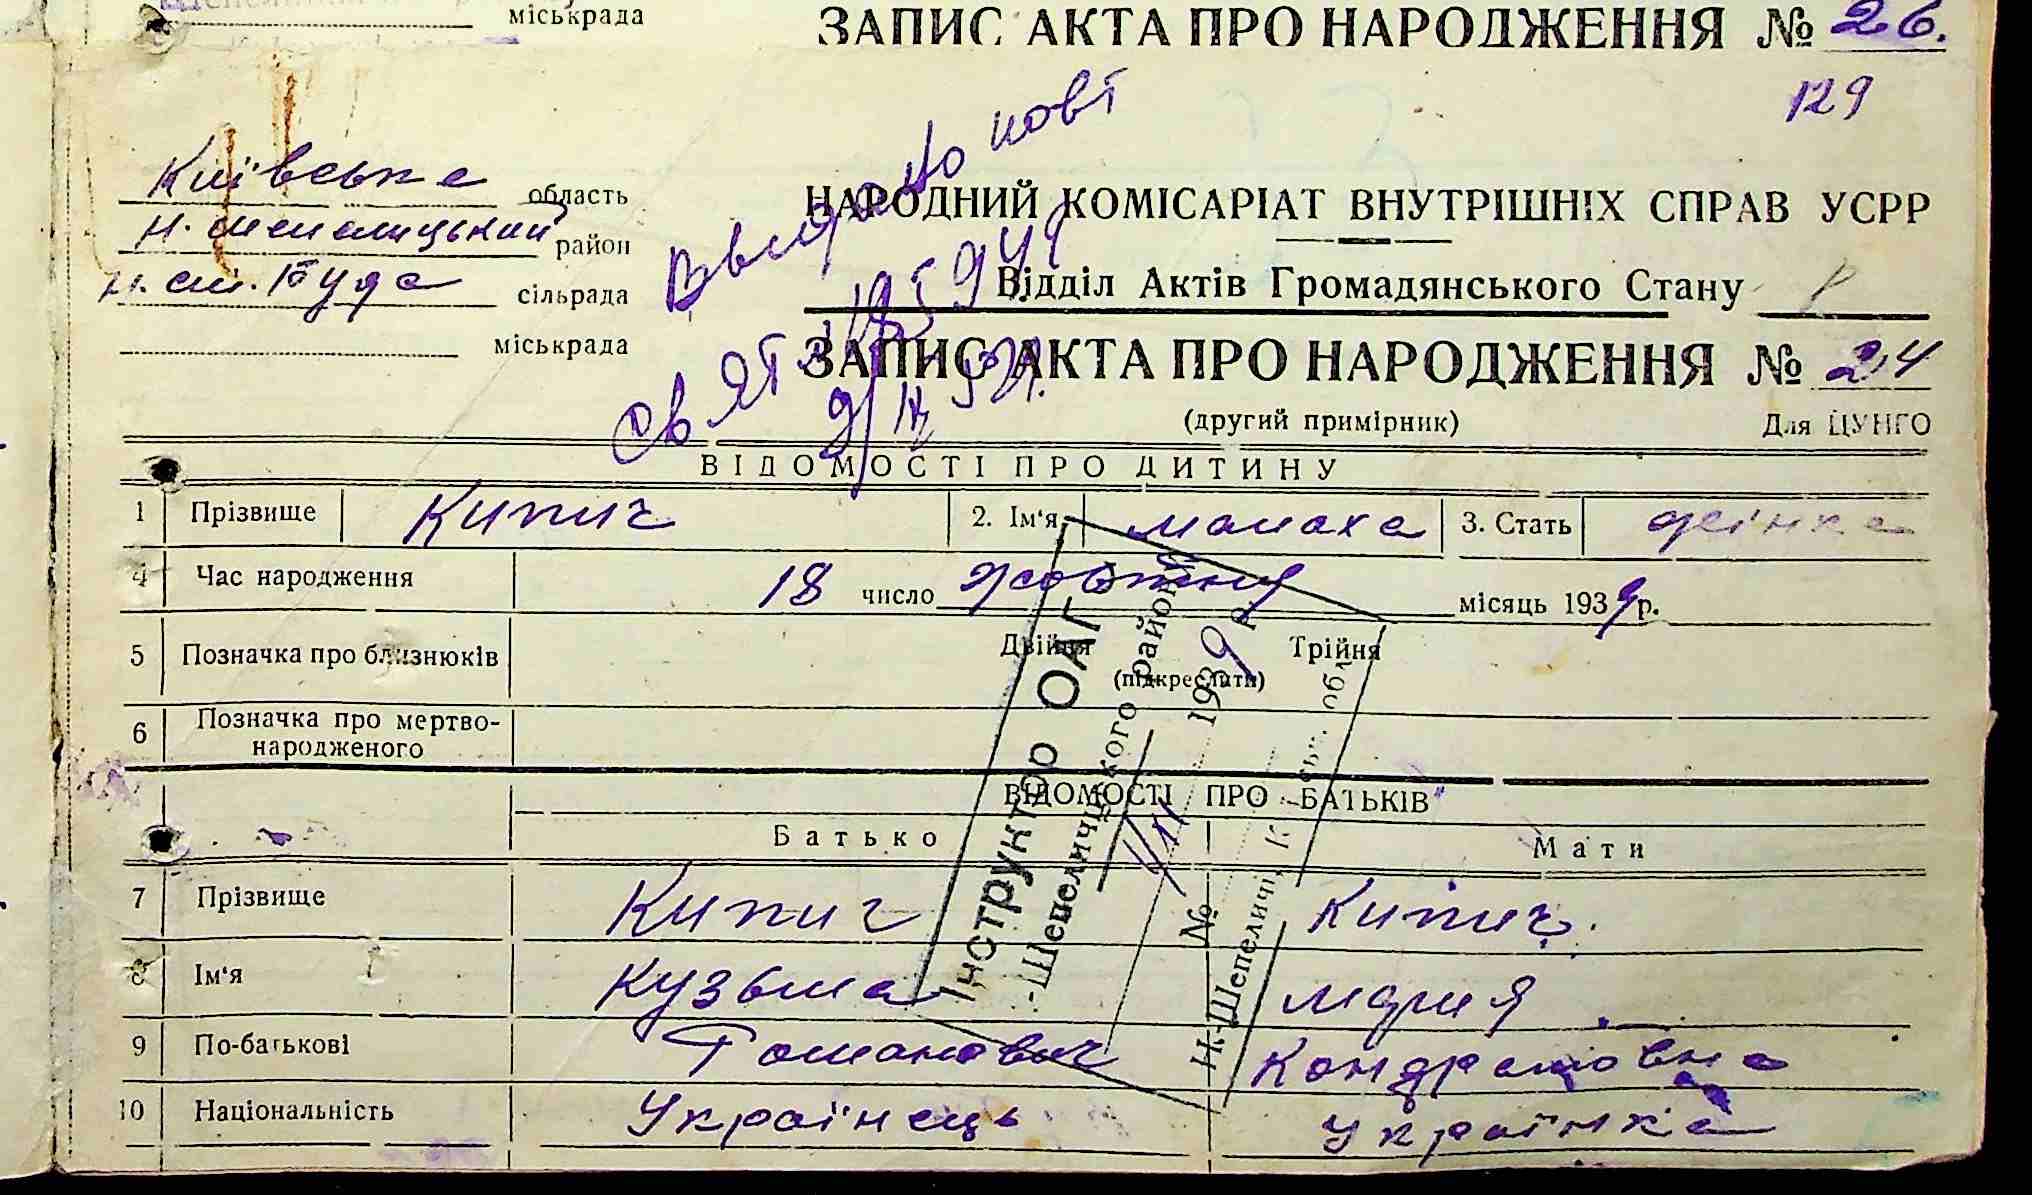 міськрада
ЗАПИС АКТА ПРО НАРОДЖЕННЯ № 26.
129
Київська область
район
Н. Ш. Буда сільрада
міськрада
Выдано повт
НАРОДНИЙ КОМІСАРІАТ ВНУТРІШНІХ СПРАВ УСРР
Відділ Актів Громадянського Стану
ЗАПИС АКТА ПРО НАРОДЖЕННЯ № 24
(другий примірник) Для ЦУНГО
ВІДОМОСТІ ПРО ДИТИНУ
1 Прізвище Кипич 2. Ім'я 3. Стать жінка
4 Час народження 18 число жовтня місяць 1939 р.
5 Позначка про близнюків Двійня Трійня
(підкреслити)
6 Позначка про мертво-
народженого
ВІДОМОСТІ ПРО БАТЬКІВ
Батько Мати
7 Прізвище Кипич Кипич.
8 Ім'я Кузьма Мария
9 По-батькові Романович Кондратовна
10 Національність Українець Українка
Інструктор ОАГ
Шепелицького району
1939 р.
№
Н.-Шепеличі, К ськ. обл